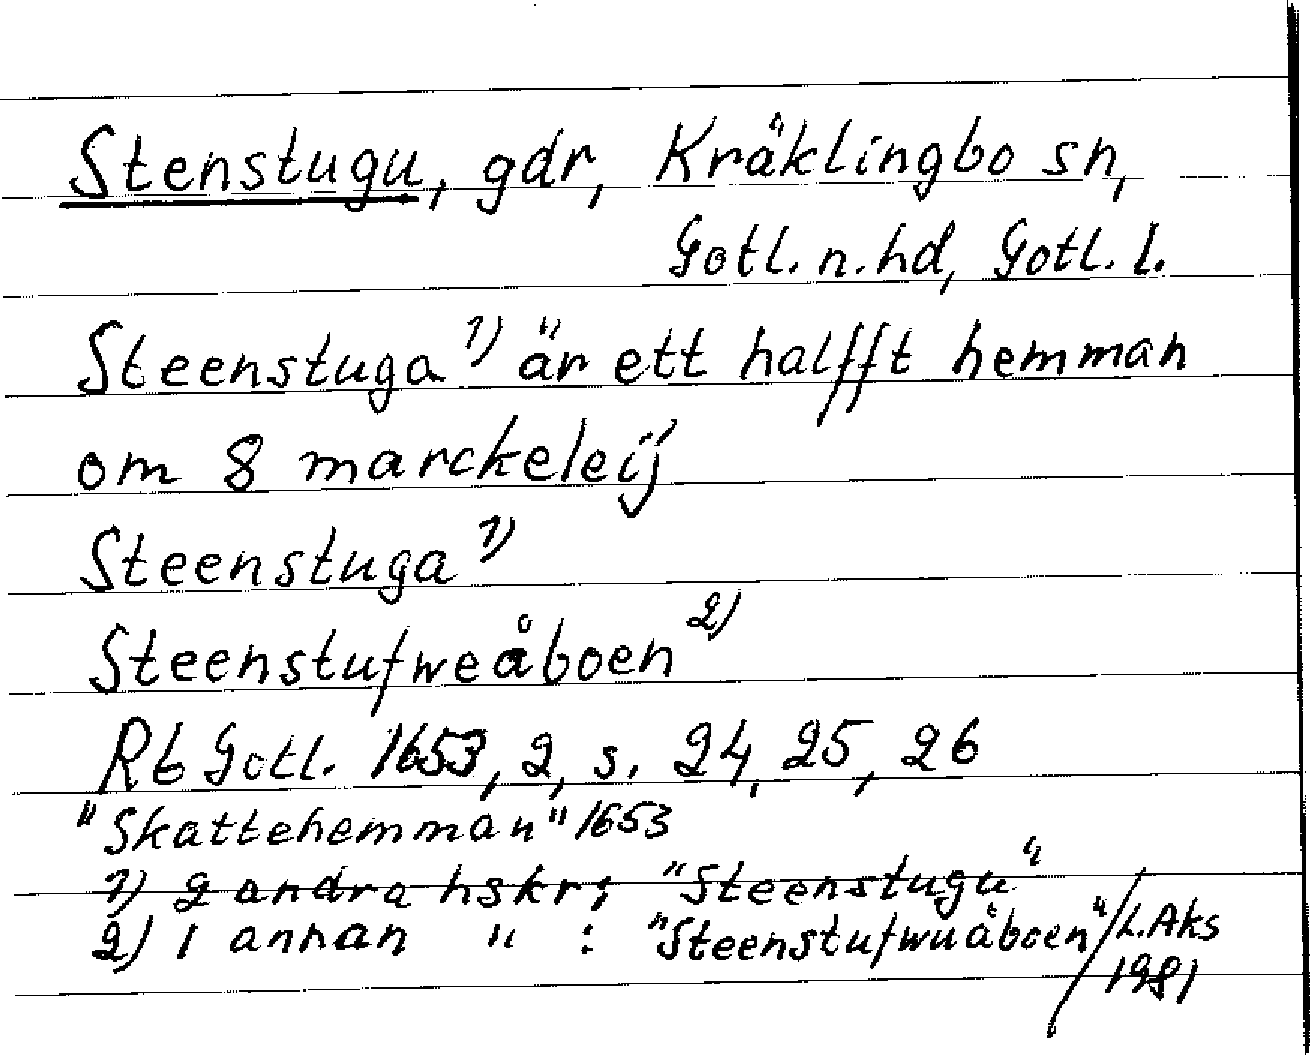 Stenstugu, gdr, Kräklingbo sn,
Gotl. n. hd, Gotl. l.
Steenstuga 1) är ett halfft hemman
om 8 marckeleij
Steenstuga 1)
Steenstufweåboen 2)
Rb Gotl. 1653, 2, s. 24, 25, 26
"Skattehemman" 1653
1) 2 andra hskr: "Steenstugu"
2) 1 annan " : "Steenstufwuåboen" / L. Aks
1981